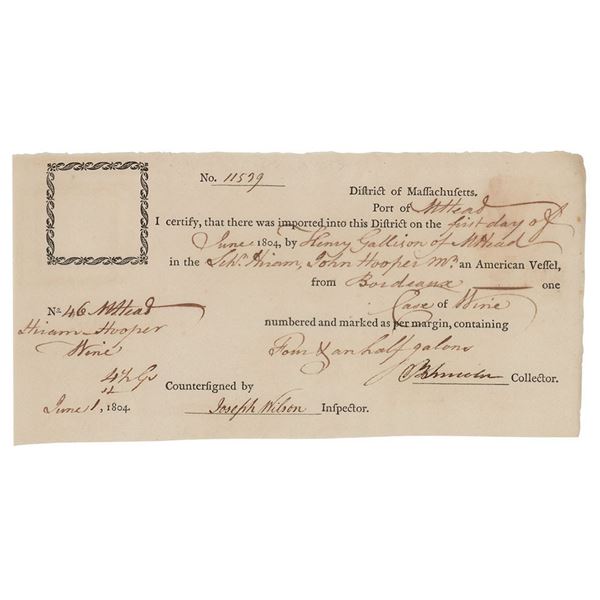 No. 11539
District of Massachusetts.
Port of MHead
I certify, that there was imported into this District on the first day of
June 1804, by Henry Gallison of MHead
in the Schr. Hiram, John Hooper Mr. an American Vessel,
from Bordeaux one
Case of Wine
numbered and marked as per margin, containing
Four & an half galons
BLincoln Collector.
No. 46 MHead
Hiram - Hooper
Wine
4½ Gs
June 1, 1804.
Countersigned by
Joseph Wilson Inspector.